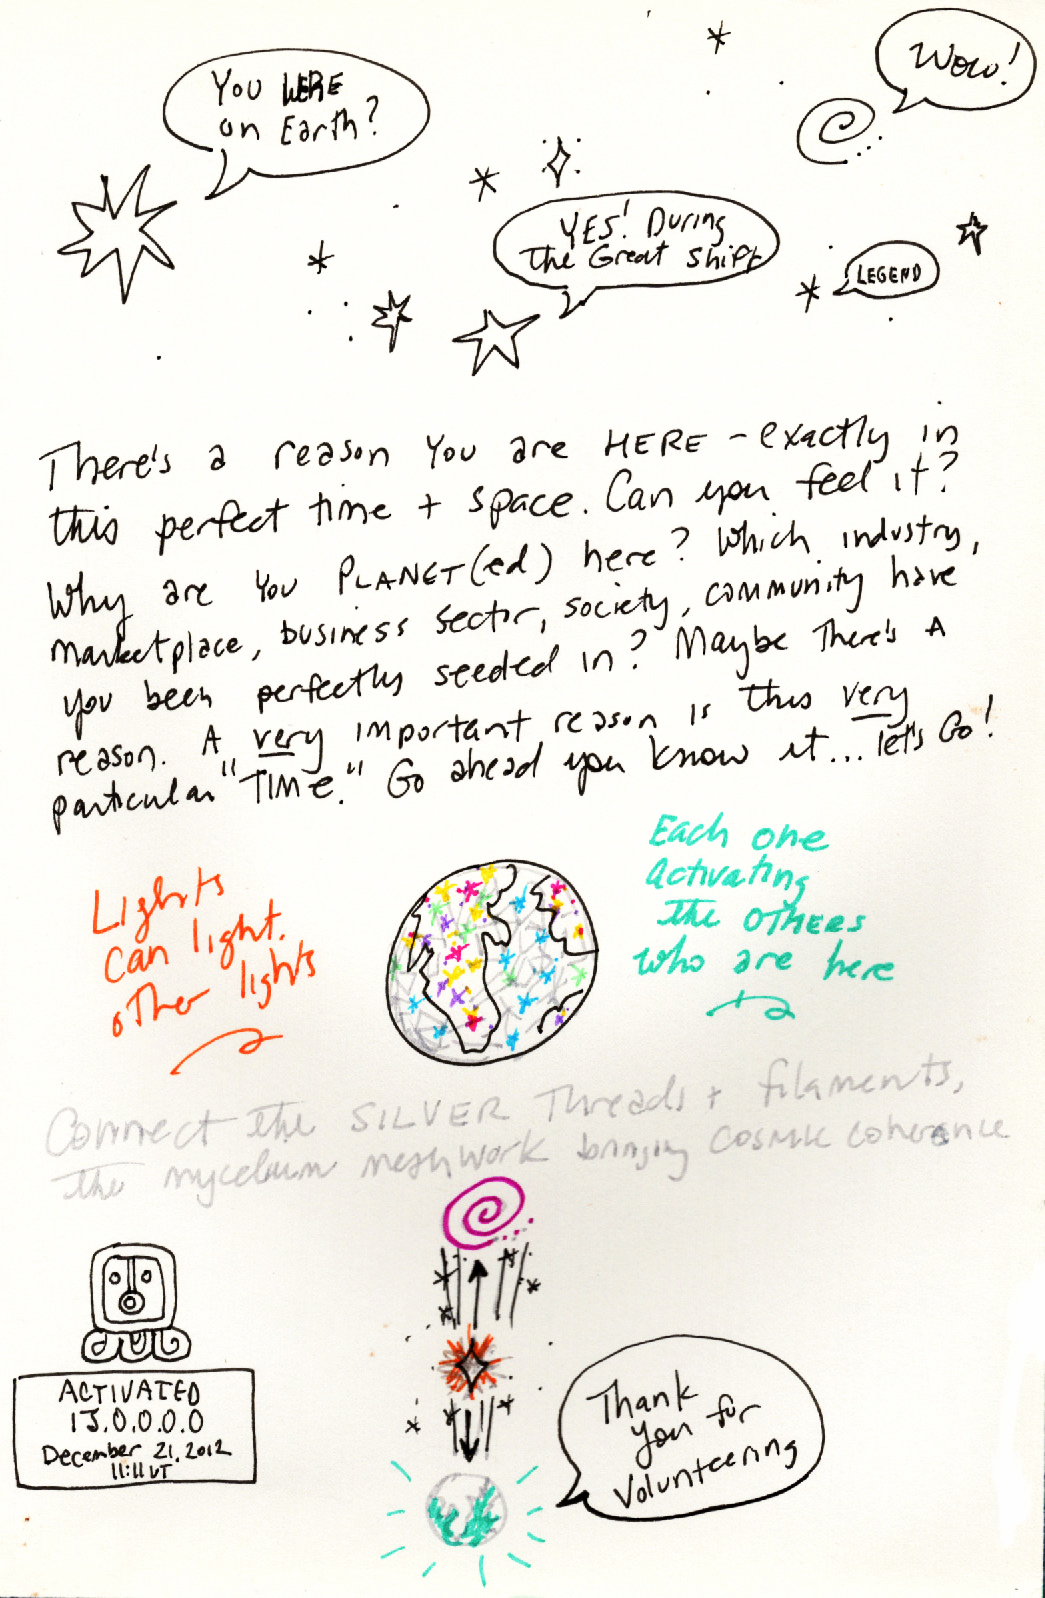 You WERE
on Earth?
Wow!
YES! During
The Great Shift
LEGEND
There's a reason You are HERE – exactly in
this perfect time + space. Can you feel it?
Why are You PLANET(ed) here? Which industry,
marketplace, business sector, society, community have
you been perfectly seeded in? Maybe There's A
reason. A very important reason is this very
particular "TIME." Go ahead you know it... let's Go!
Lights
can light
other lights
Each one
Activating
the OTHERS
who are here
Connect the SILVER Threads + filaments,
the mycelium meshwork bringing cosmic coherence
ACTIVATED
13.0.0.0.0
December 21, 2012
11:11 UT
Thank
you for
Volunteering